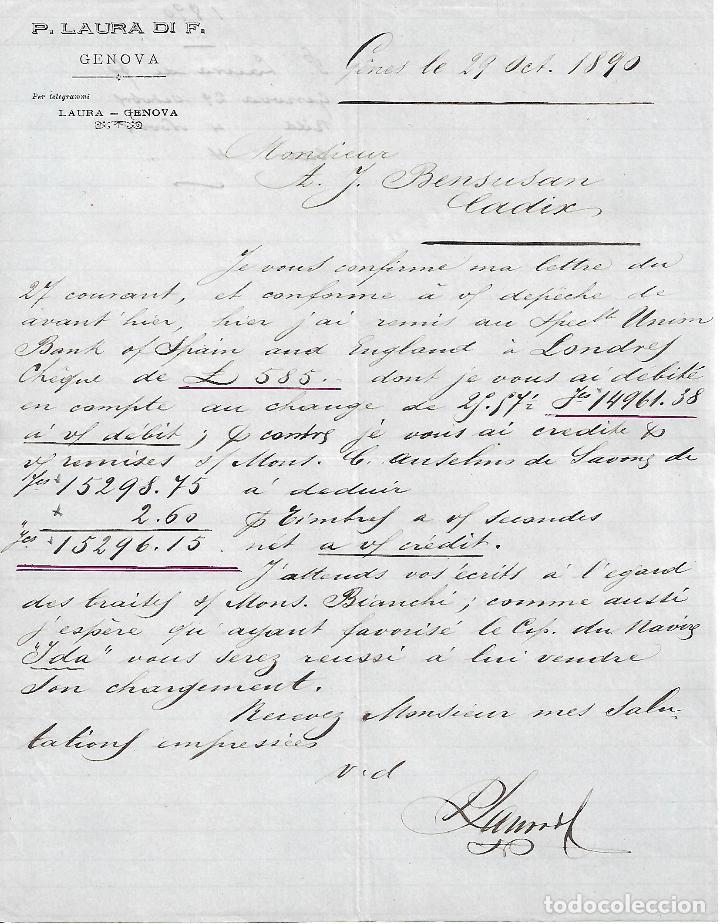 P. LAURA DI F.
GENOVA
Per telegrammi
LAURA – GENOVA
Gênes le 29 Oct. 1890
Monsieur
A. J. Bensusan
Cadix
Je vous confirme ma lettre du
27 courant, et conforme à v/ depêche de
avant'hier, hier j'ai remis au Spec.le Union
Bank of Spain and England à Londres
Chèque de £ 585.- dont je vous ai debité
en compte au change de 25.57½ Fcs 14961.38
à v/ débit; & contre je vous ai credité &
v/ remises s/ Mons. C. Anselmo de Savone de
Fcs 15298.75 à deduir
" 2.60 & Timbres a v/ secondes
Fcs 15296.15 net a v/ crédit.
J'attends vos écrits à l'egard
des traites s/ Mons. Bianchi; comme aussi
j'espère qu'ayant favorisé le Cap. du Navire
"Ida" vous serez reussi à lui vendre
son chargement.
Recevez Monsieur mes Salu-
tations empressées
v.d
P Laura
todocoleccion